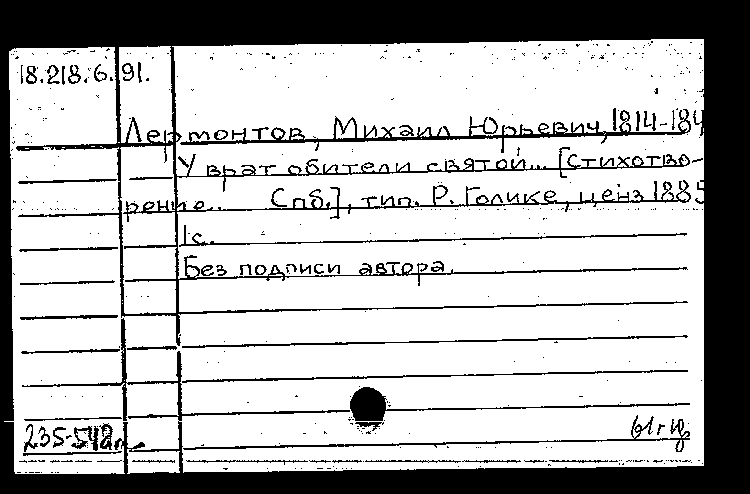 18.218.6.91.
Лермонтов, Михаил Юрьевич, 1814-184
У врат обители святой... [Стихотво-
рение.. Спб.], тип. Р. Голике, ценз 1885
1с.
Без подписи автора.
235-542л